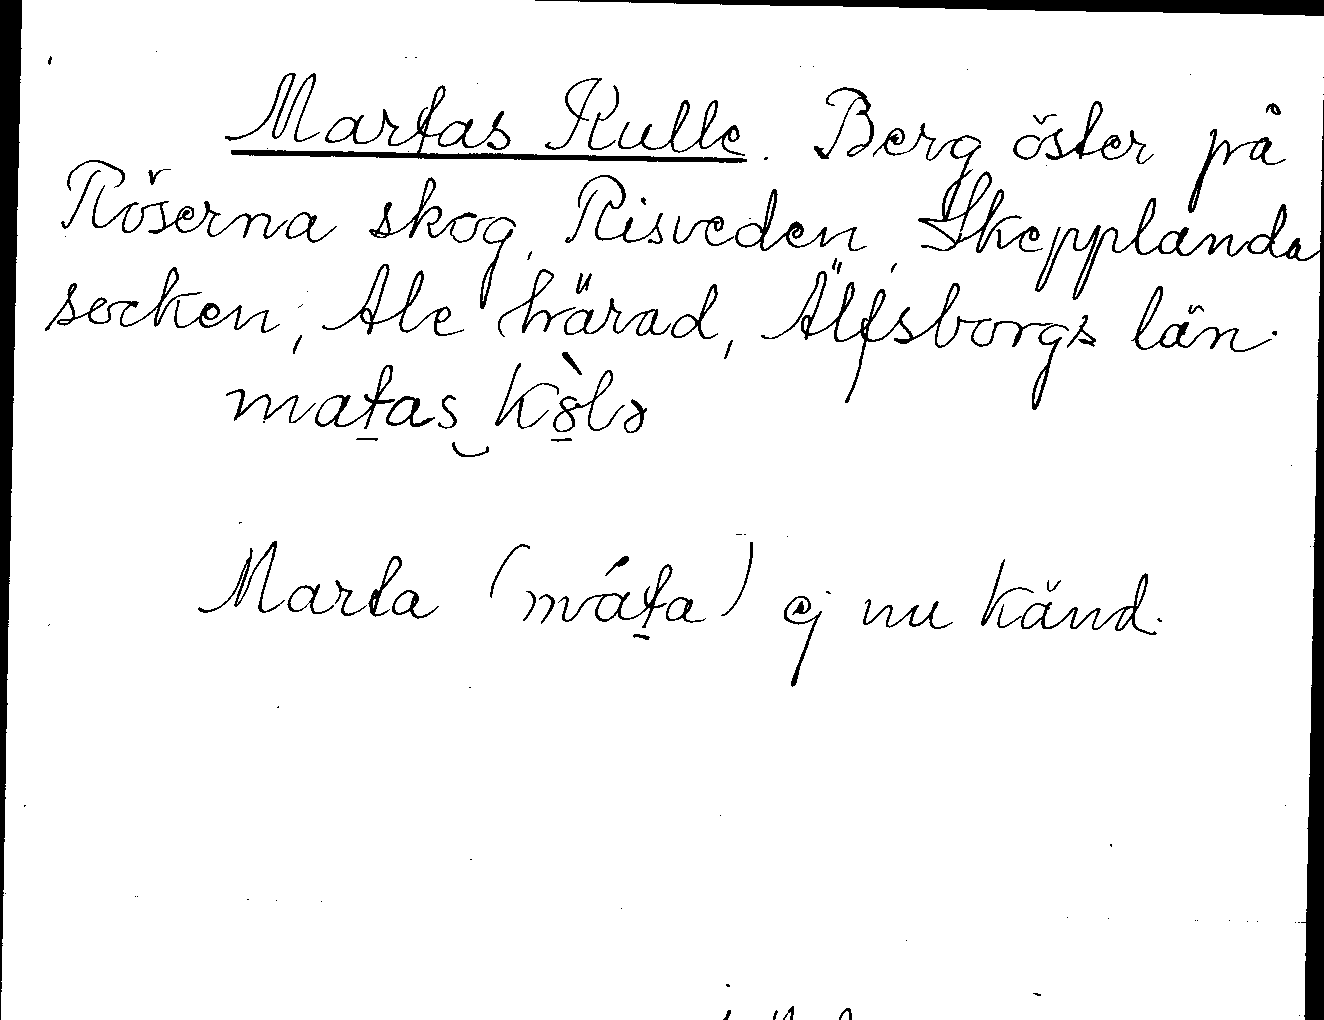 Martas Kulle. Berg öster på
Röserna skog, Risveden, Skepplanda
socken, Ale härad, Älfsborgs län.
maṯas‿kö̀lə
Marta (máṯa) ej nu känd.